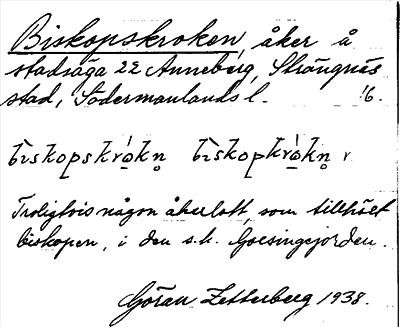 Biskopskroken, åker å
stadsäga 22 Anneberg, Strängnäs
stad, Södermanlands l. 16.
biskopskrok̥n biskopkrok̥n r
Troligtvis någon åkerlott, som tillhört
biskopen, i den s.k. Gorsingejorden.
Göran Zetterberg 1938.